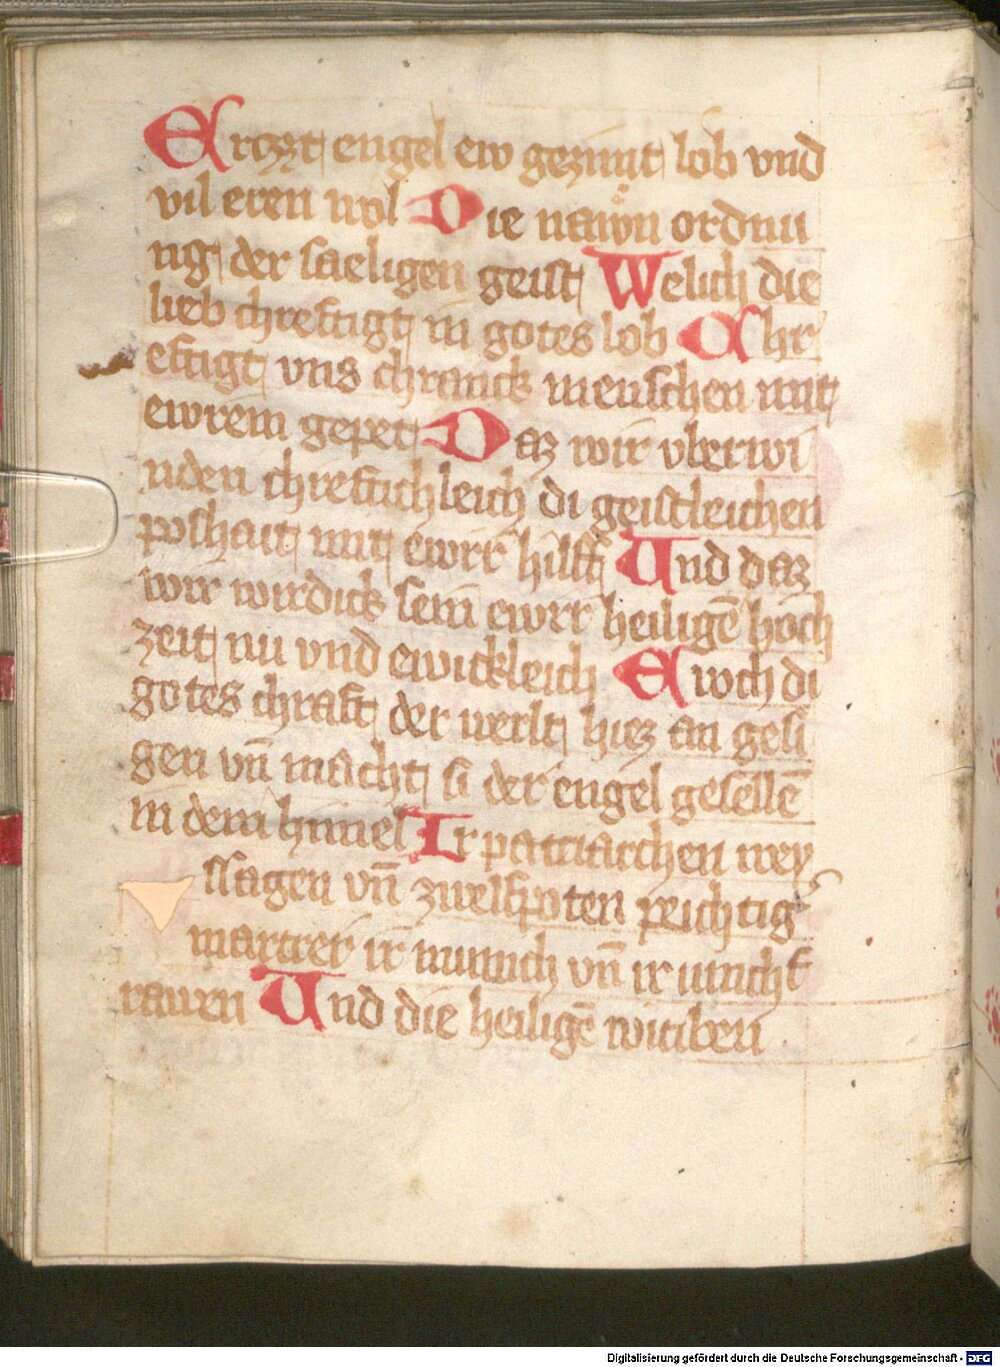 Erczt engel ew gezimt lob vnd
vil eren wol Die nawn ordnu
ng der saeligen geist Welich die
lieb chreftigt in gotes lob Chr
eftigt vns chranck menschen mit
ewrem gepet Daz wir vberwi
nden chreftichleich di geistleichen
poshait mit ewrr hilff Und daz
wir wirdick sein ewrr heiligē hoch
zeit nu vnd ewickleich Ewch di
gotes chraft der werlt hiez an gesi
gen vn̄ macht si der engel gesellē
in dem himel Ir patriarchen wey
ssagen vn̄ zwelfpoten peichtig
martrer ir munich vn̄ ir iunchf
rawen Und die heiligē witiben
Digitalisierung gefördert durch die Deutsche Forschungsgemeinschaft - DFG